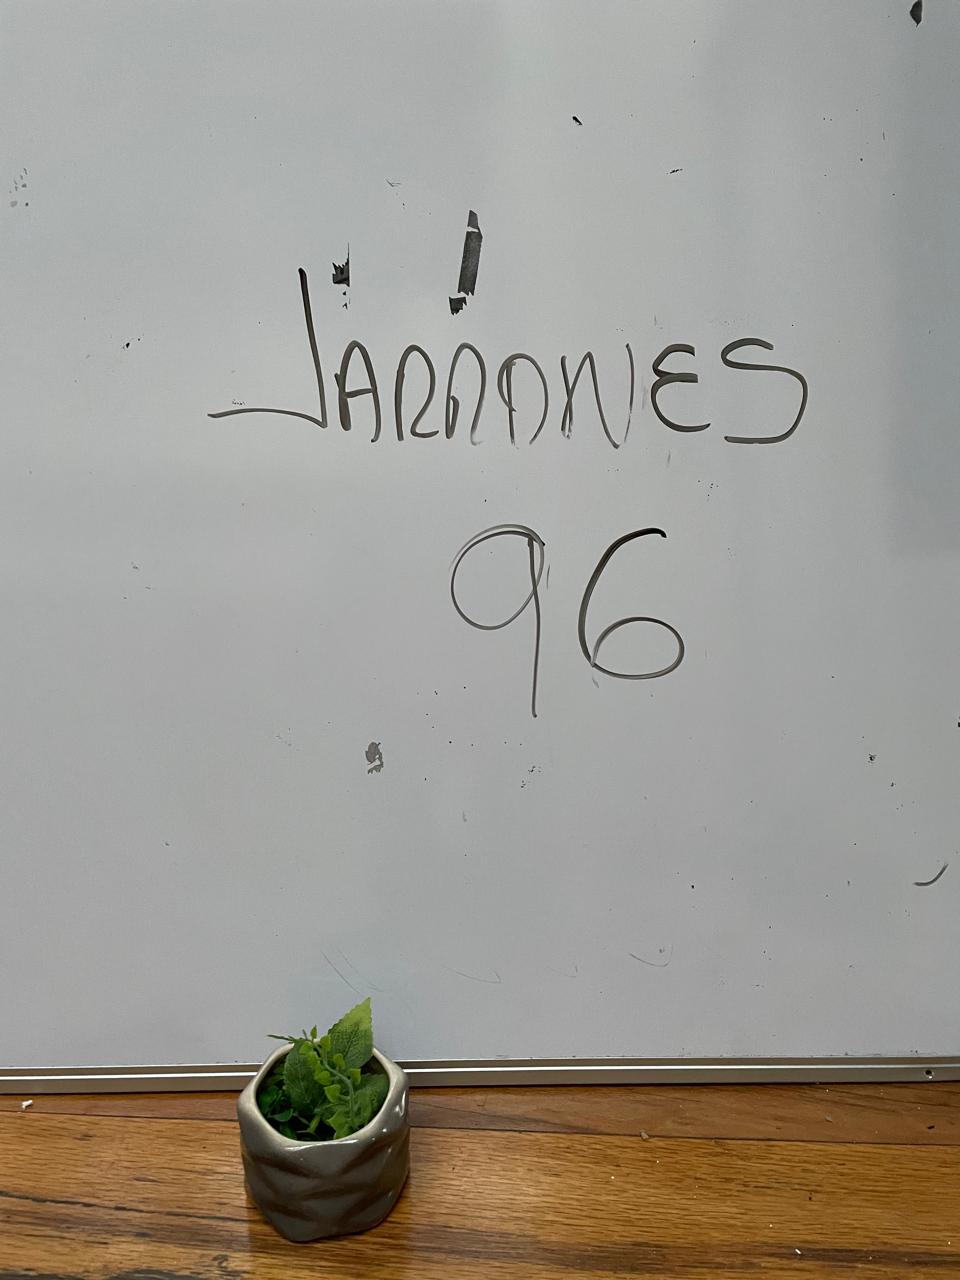 JARRONES
96